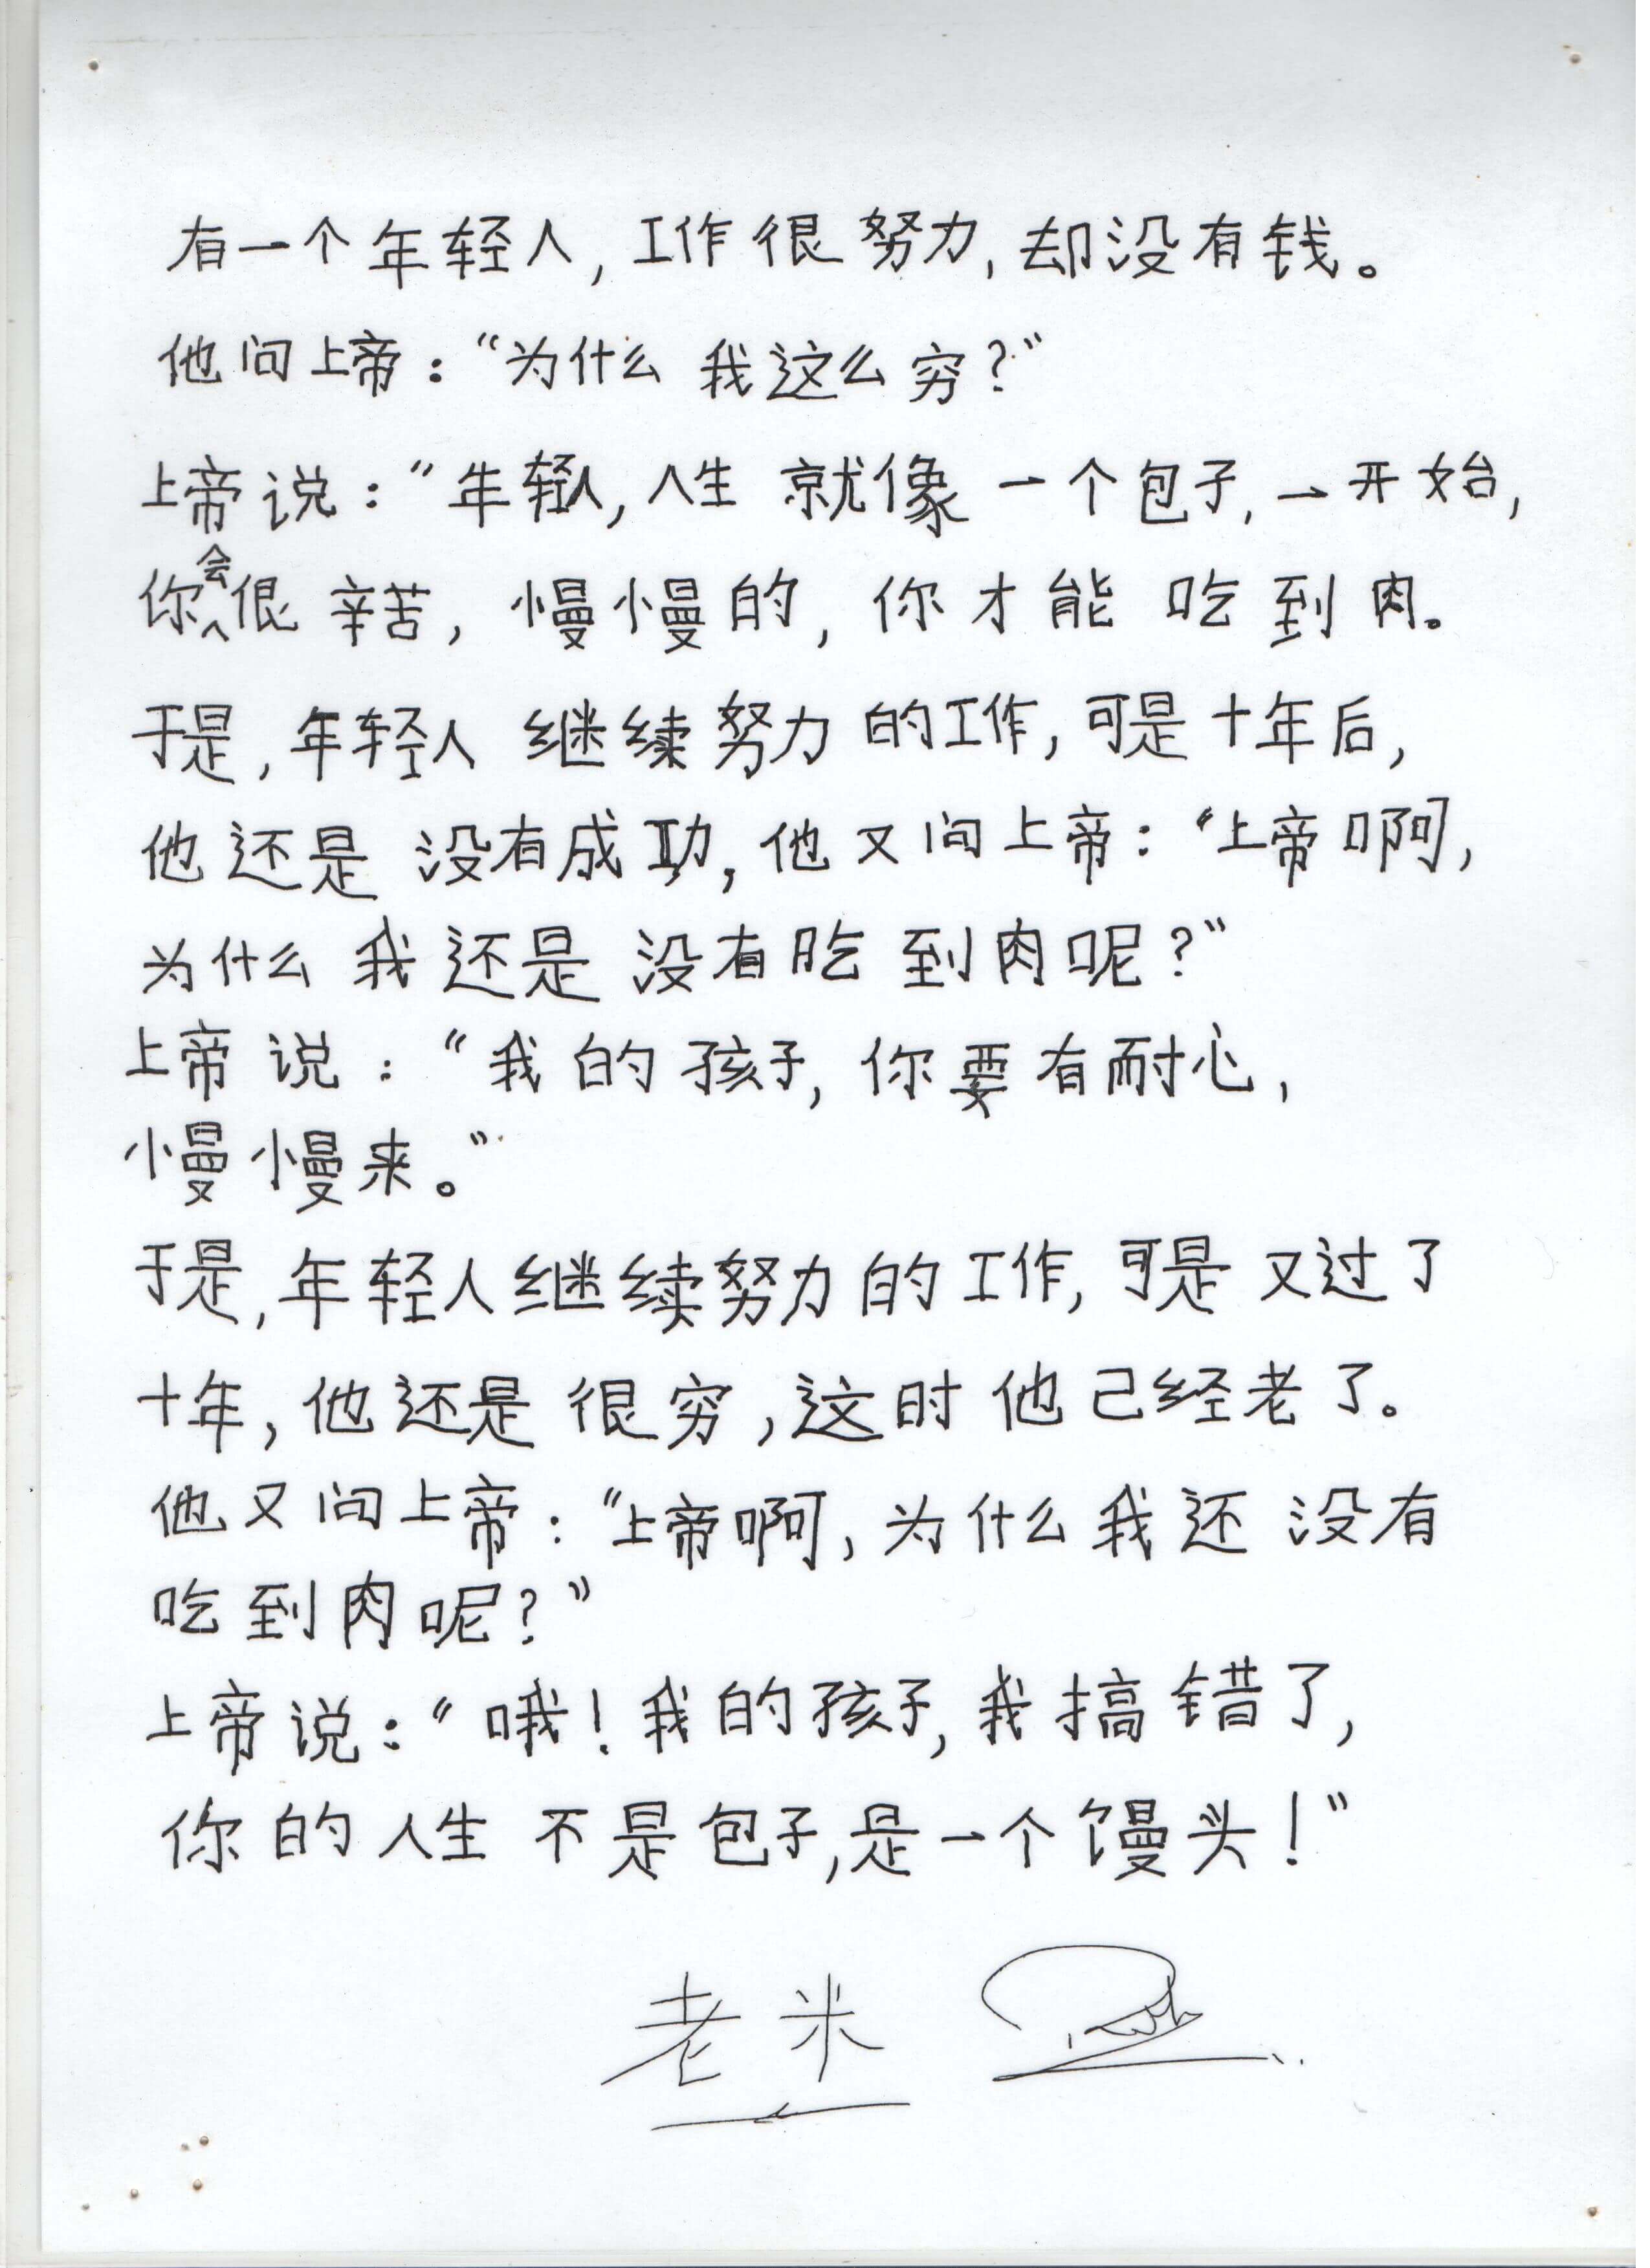 有一个年轻人,工作很努力,却没有钱。
他问上帝:“为什么我这么穷?”
上帝说:“年轻人,人生就像一个包子,一开始,
你会很辛苦,慢慢的,你才能吃到肉。
于是,年轻人继续努力的工作,可是十年后,
他还是没有成功,他又问上帝:“上帝啊,
为什么我还是没有吃到肉呢?”
上帝说:“我的孩子,你要有耐心,
慢慢来。”
于是,年轻人继续努力的工作,可是又过了
十年,他还是很穷,这时他己经老了。
他又问上帝:“上帝啊,为什么我还没有
吃到肉呢?”
上帝说:“哦!我的孩子,我搞错了,
你的人生不是包子,是一个馒头!”
老米